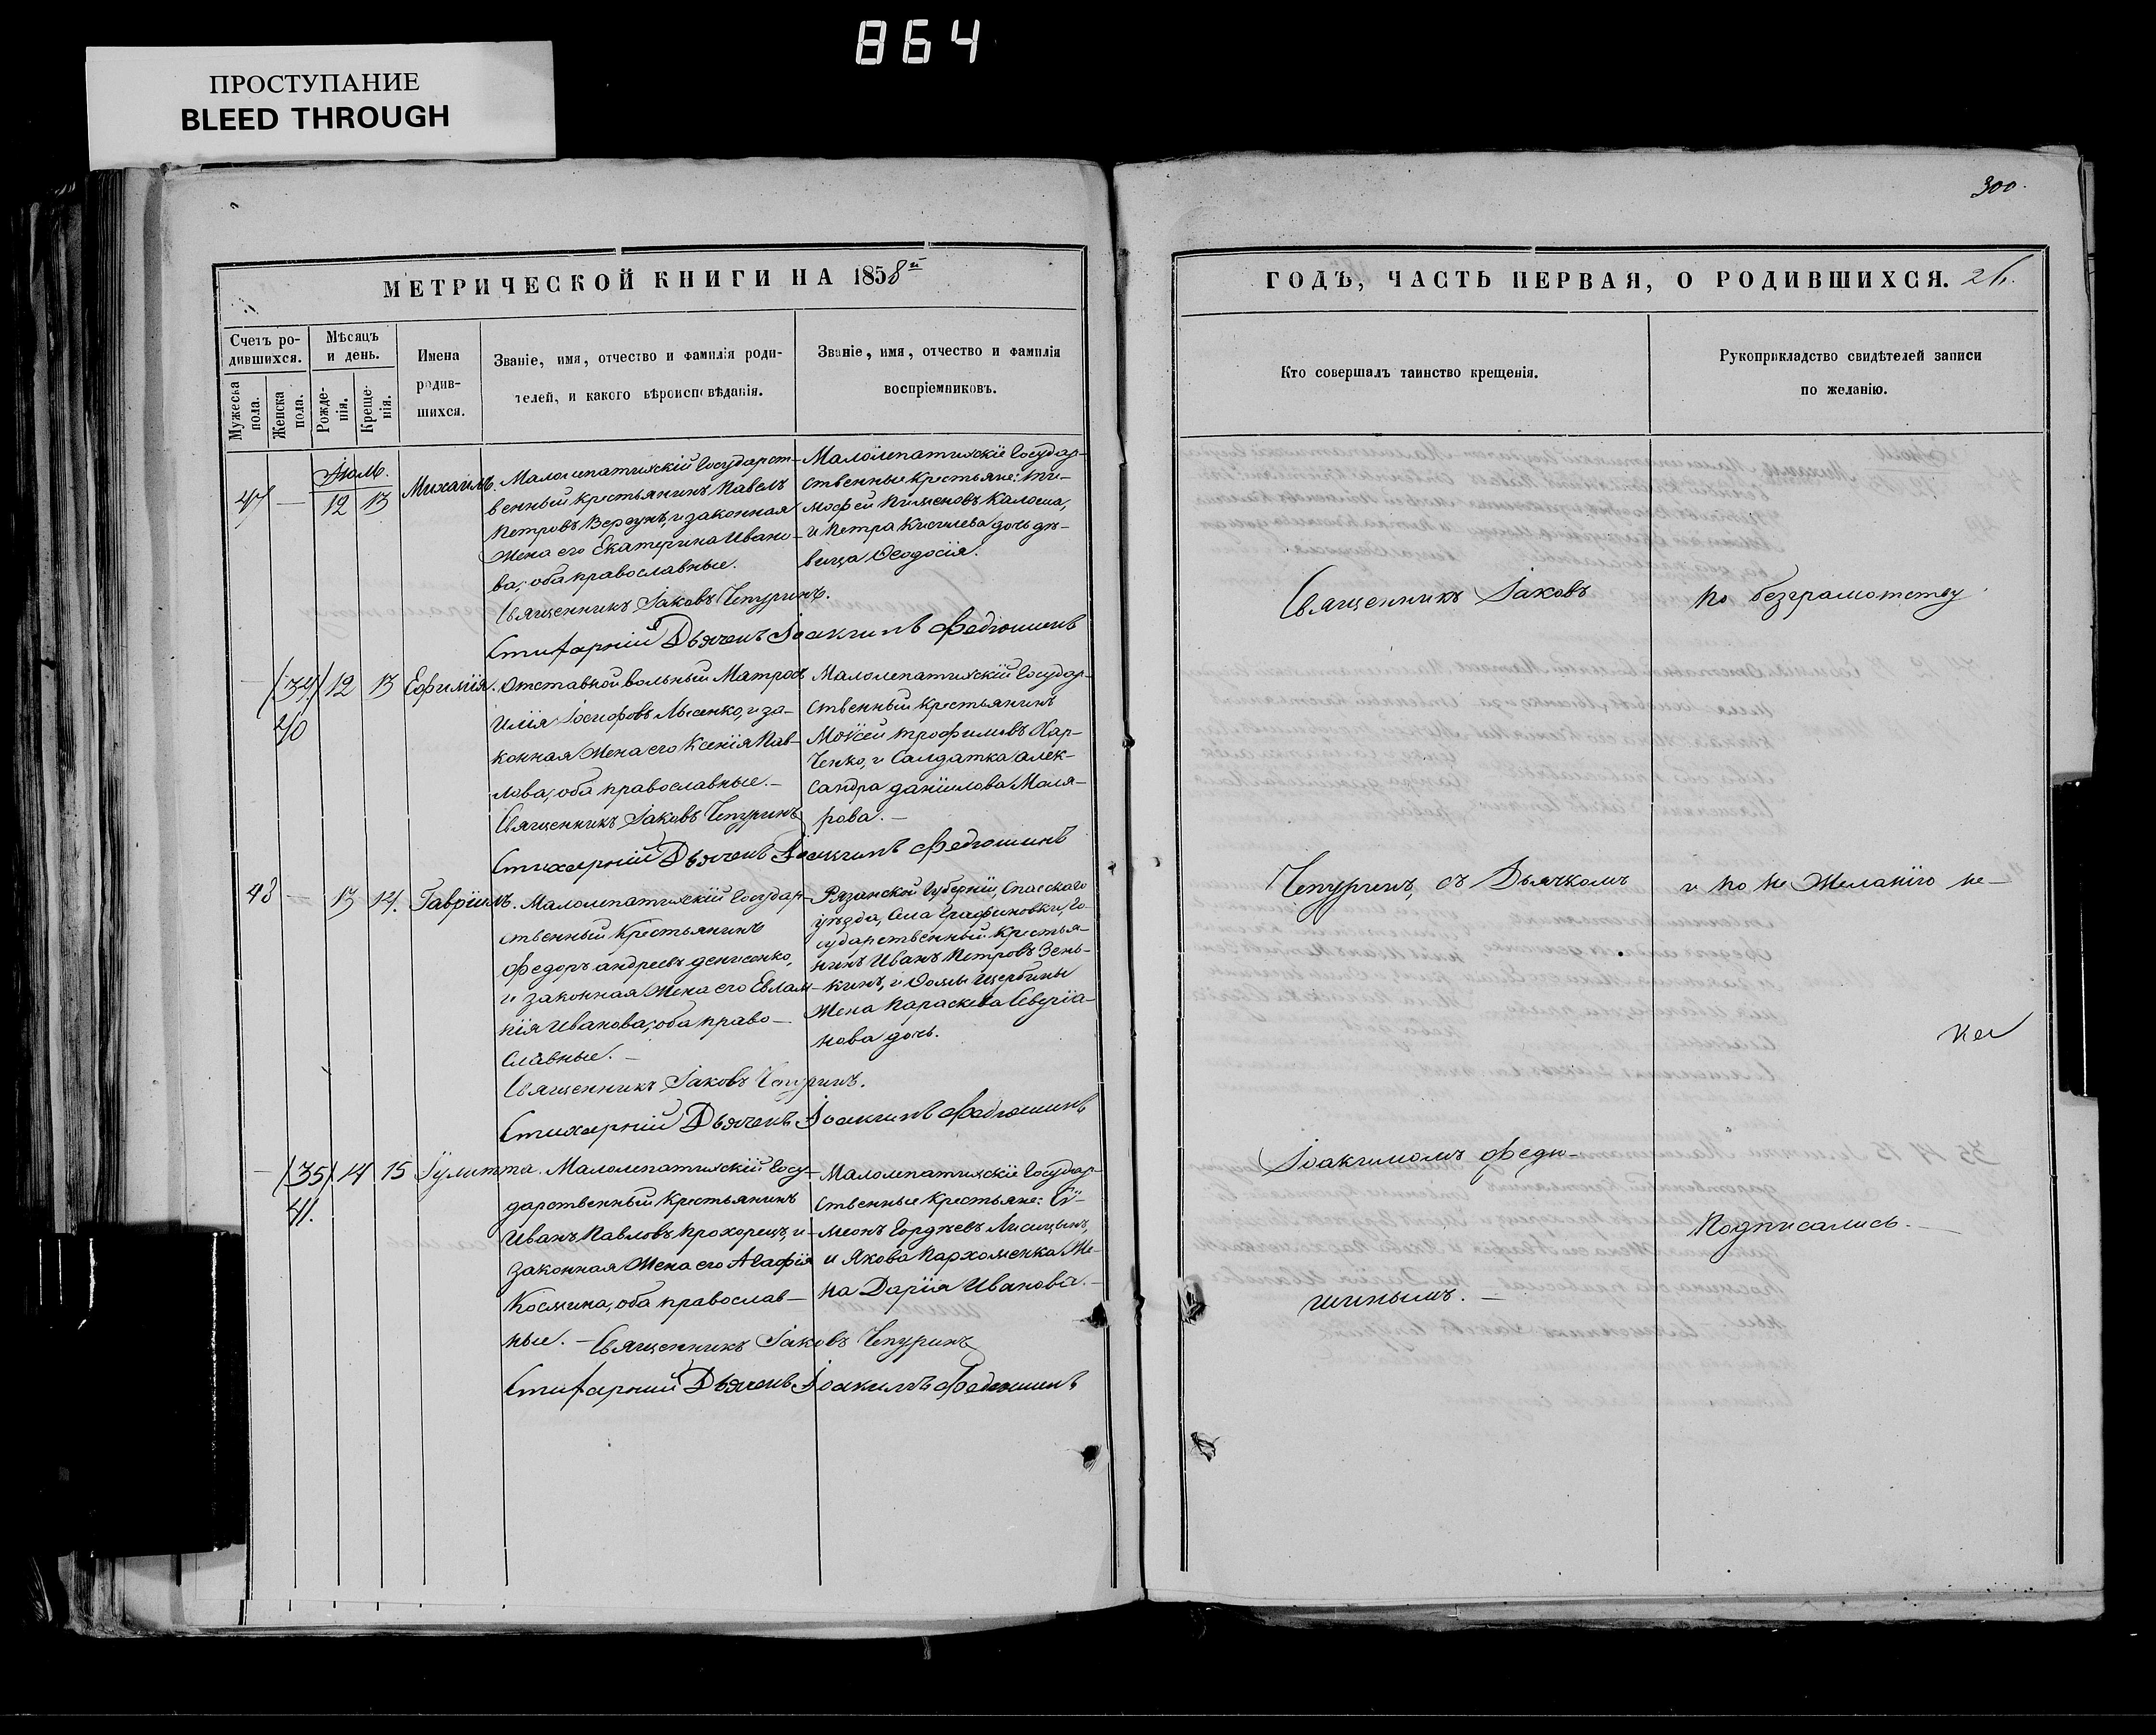 864
ПРОСТУПАНИЕ
BLEED THROUGH
300.
МЕТРИЧЕСКОЙ КНИГИ НА 1858й
Счетъ ро-
дившихся.
Мужеска пола.
Женска пола.
Мѣсяцъ
и день.
Рожде-
нія.
Креще-
нія.
Имена
родив-
шихся.
Званіе, имя, отчество и фамилія роди-
телей, и какого вѣроисповѣданія.
Званіе, имя, отчество и фамилія
воспріемниковъ.
Іюль.
47 — 12 13 Михаилъ.
Малолепатихскій Государст-
венный крестьянинъ Павелъ
Петровъ Вердунъ, и законная
жена его Екатерина Ивано-
ва, оба православные.
Священникъ Іаковъ Чепуринъ.
Стихарный Дьячекъ Іоакимъ Федюшинъ
Малолепатихскіе Государ-
ственные крестьяне: Ти-
мофей Пименовъ Калоша,
и Петра Киселева дочь дѣ-
вица Ѳеодосія.
— (34) 12 13 Ефимія.
40
Отставной вольный Матросъ
Илія Іосифовъ Лысенко, и за-
конная жена его Ксенія Пав-
лова, оба православные. —
Священникъ Іаковъ Чепуринъ
Стихарный Дьячекъ Іоакимъ Федюшинъ
Малолепатихскій Государ-
ственный крестьянинъ
Моѵсей Трофимовъ Хар-
ченко, и Салдатка Алек-
сандра Даніилова Маля-
рова. —
48 — 13 14. Гавріилъ.
Малолепатихскій Государ-
ственный крестьянинъ
Федоръ Андреевъ Денисенко,
и законная жена его Евлам-
пія Иванова, оба право-
славные. —
Священникъ Іаковъ Чепуринъ.
Стихарный Дьячекъ Іоакимъ Федюшинъ
Рязанской Губерніи, Спасскаго
уѣзда, Села Го-
сударственный крестья-
нинъ Иванъ Петровъ Зень-
кинъ, и Ѳомы Щербины
жена Параскева Северіа-
нова дочь.
— (35) 14 15 Іулитта.
41.
Малолепатихскій Госу-
дарственный крестьянинъ
Иванъ Павловъ Прохорецъ, и
законная жена его Агафія
Космина, оба православ-
ные. — Священникъ Іаковъ Чепуринъ
Стихарный Дьячекъ Іоакимъ Федюшинъ
Малолепатихскіе Государ-
ственные крестьяне: Сѵ-
меонъ Гордѣевъ Лисицынъ,
и Якова Пархоменка же-
на Дарія Иванова. —
ГОДЪ, ЧАСТЬ ПЕРВАЯ, О РОДИВШИХСЯ. 26.
Кто совершалъ таинство крещенія.
Рукоприкладство свидѣтелей записи
по желанію.
Священникъ Іаковъ
Чепуринъ, съ Дьячкомъ
Іоакимомъ Федю-
шинымъ. —
По безграмотству
и по не желанію не-
Подписались. —